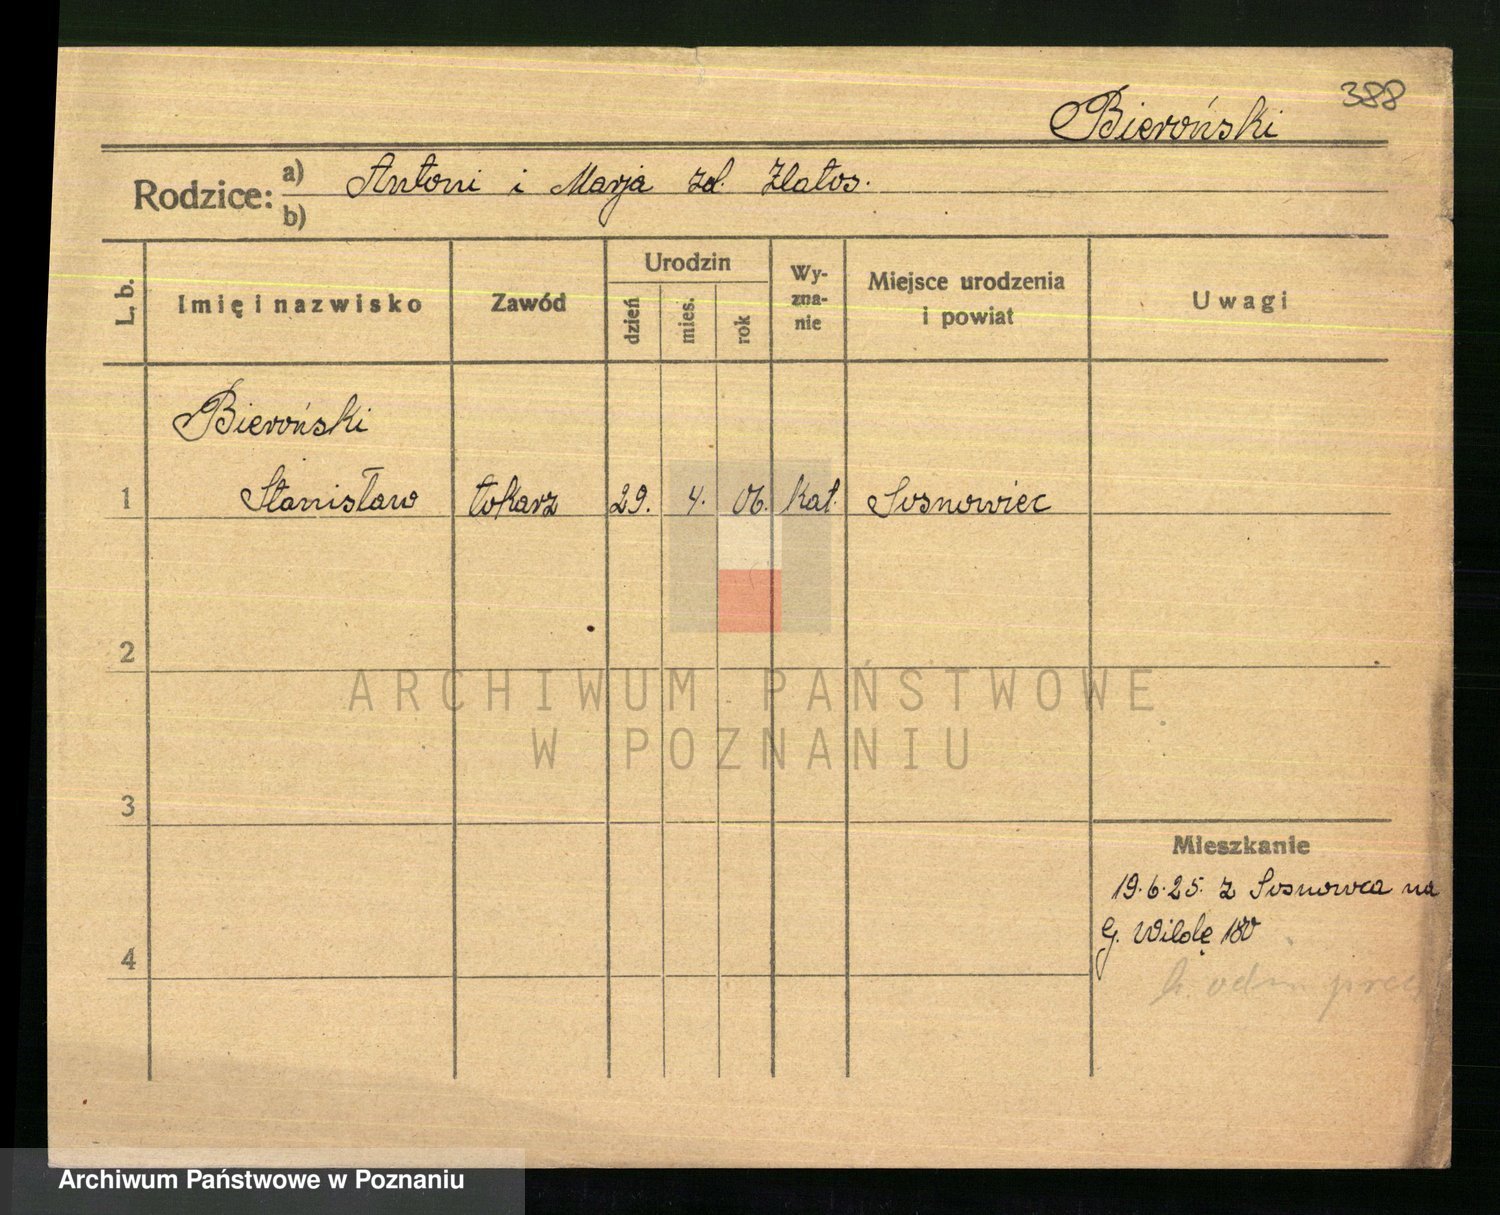 388
Bieroński
Rodzice: a) Antoni i Marja zd. Zlatos.
b)
L. b.
Imię i nazwisko
Zawód
Urodzin
dzień
mies.
rok
Wy-
zna-
nie
Miejsce urodzenia
i powiat
Uwagi
Bieroński
1 Stanisław tokarz 29. 4. 06. kat. Sosnowiec
2
ARCHIWUM PAŃSTWOWE
W POZNANIU
3
Mieszkanie
19.6.25. z Sosnowca na
G. Wildę 180
4
Archiwum Państwowe w Poznaniu